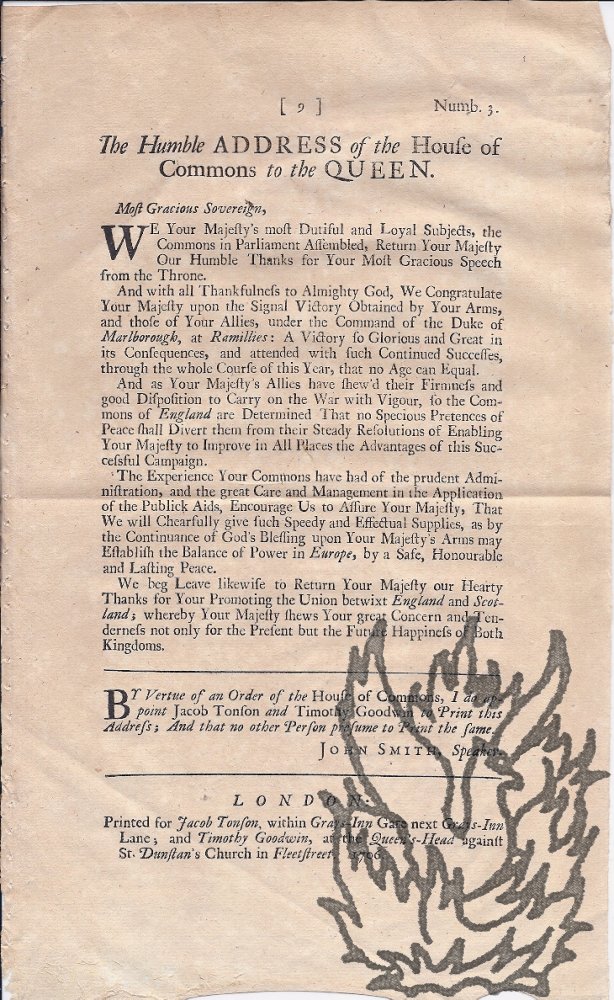 [ 9 ] Numb. 3.
The Humble ADDRESS of the Houſe of
Commons to the QUEEN.
Moſt Gracious Sovereign,
WE Your Majeſty's moſt Dutiful and Loyal Subjects, the
Commons in Parliament Aſſembled, Return Your Majeſty
Our Humble Thanks for Your Moſt Gracious Speech
from the Throne.
And with all Thankfulneſs to Almighty God, We Congratulate
Your Majeſty upon the Signal Victory Obtained by Your Arms,
and thoſe of Your Allies, under the Command of the Duke of
Marlborough, at Ramillies: A Victory ſo Glorious and Great in
its Conſequences, and attended with ſuch Continued Succeſſes,
through the whole Courſe of this Year, that no Age can Equal.
And as Your Majeſty's Allies have ſhew'd their Firmneſs and
good Diſpoſition to Carry on the War with Vigour, ſo the Com-
mons of England are Determined That no Specious Pretences of
Peace ſhall Divert them from their Steady Reſolutions of Enabling
Your Majeſty to Improve in All Places the Advantages of this Suc-
ceſsful Campaign.
The Experience Your Commons have had of the prudent Admi-
niſtration, and the great Care and Management in the Application
of the Publick Aids, Encourage Us to Aſſure Your Majeſty, That
We will Chearfully give ſuch Speedy and Effectual Supplies, as by
the Continuance of God's Bleſſing upon Your Majeſty's Arms may
Eſtabliſh the Balance of Power in Europe, by a Safe, Honourable
and Laſting Peace.
We beg Leave likewiſe to Return Your Majeſty our Hearty
Thanks for Your Promoting the Union betwixt England and Scot-
land; whereby Your Majeſty ſhews Your great Concern and Ten-
derneſs not only for the Preſent but the Future Happineſs of Both
Kingdoms.
BY Vertue of an Order of the Houſe of Commons, I do ap-
point Jacob Tonſon and Timothy Goodwin to Print this
Addreſs; And that no other Perſon preſume to Print the ſame.
JOHN SMITH, Speaker.
LONDON:
Printed for Jacob Tonſon, within Grays-Inn Gate next Grays-Inn
Lane; and Timothy Goodwin, at the Queen's-Head againſt
St. Dunſtan's Church in Fleetſtreet. 1706.